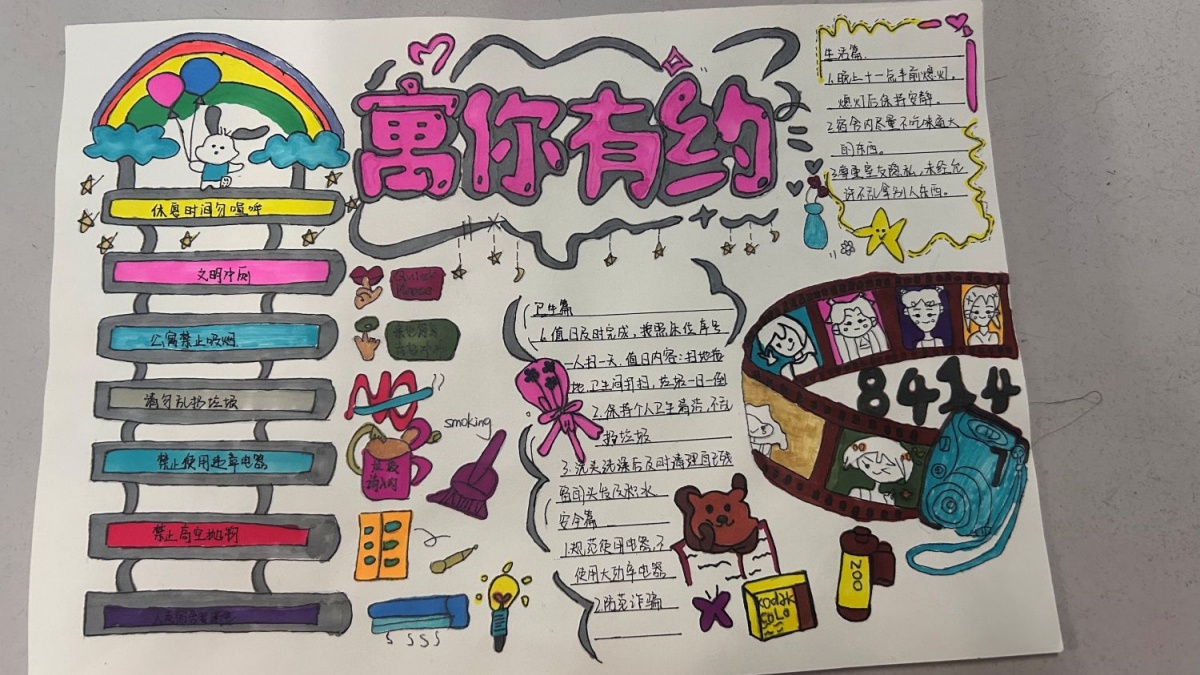 寓你有约
休息时间勿喧哗
文明冲厕
公寓禁止吸烟
请勿乱扔垃圾
禁止使用违章电器
禁止高空抛物
Quiet
Please
NO
smoking
垃圾
请入内
生活篇
1.晚上十一点半前熄灯,
熄灯后保持安静。
2.宿舍内尽量不吃味道大
的东西。
3.尊重室友隐私,未经允
许不乱拿别人东西。
卫生篇
1.值日及时完成,按照床位序号
一人扫一天,值日内容:扫地拖
地,卫生间打扫,垃圾一日一倒
2.保持个人卫生清洁,不乱
扔垃圾
3.洗头洗澡后及时清理自己残
留的头发及积水
安全篇
1.规范使用电器,不
使用大功率电器
2.防范诈骗
8414
Kodak
200